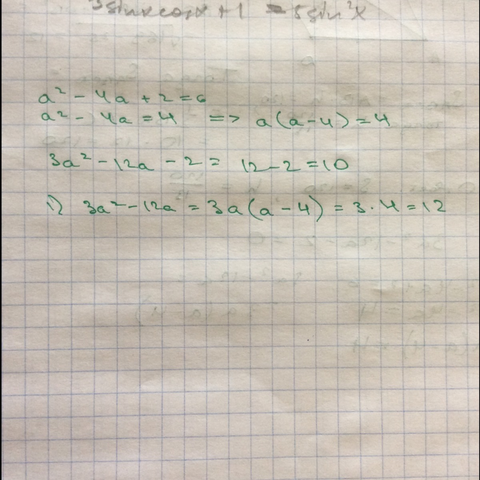 3sinxcosx + 1 = 5sin²x
a² - 4a + 2 = 6
a² - 4a = 4 => a(a-4) = 4
3a² - 12a - 2 = 12 - 2 = 10
1) 3a² - 12a = 3a(a-4) = 3·4 = 12